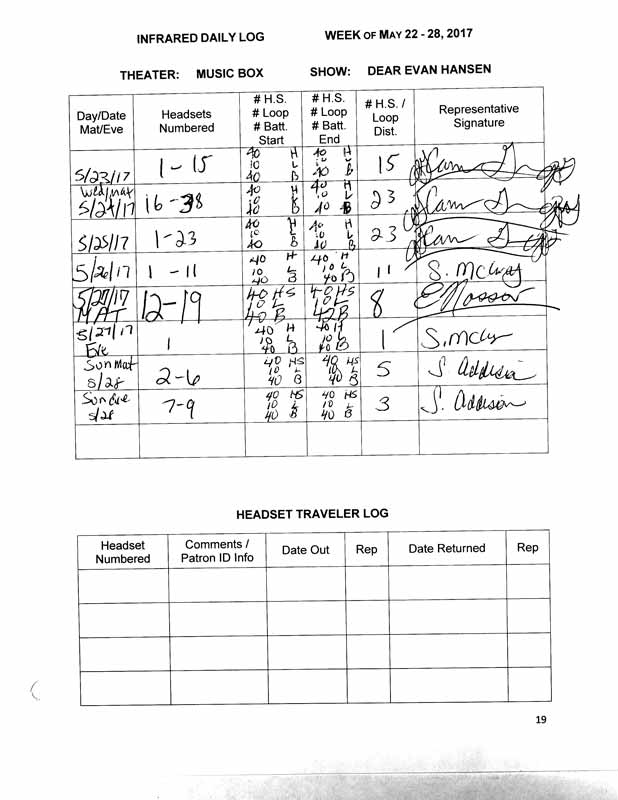 INFRARED DAILY LOG WEEK OF MAY 22 - 28, 2017
THEATER: MUSIC BOX SHOW: DEAR EVAN HANSEN
Day/Date
Mat/Eve
Headsets
Numbered
# H.S.
# Loop
# Batt.
Start
# H.S.
# Loop
# Batt.
End
# H.S. /
Loop
Dist.
Representative
Signature
5/23/17
1 - 15
40 H
10 L
40 B
40 H
10 L
40 B
15
Wed/mat
5/24/17
16 - 38
40 H
10 L
40 B
40 H
10 L
40 B
23
5/25/17
1 - 23
40 H
10 L
40 B
40 H
10 L
40 B
23
5/26/17
1 - 11
40 H
10 L
40 B
40 H
10 L
40 B
11
5/27/17
MAT
12 - 19
40 HS
10 L
40 B
40 HS
10 L
42 B
8
5/27/17
Eve
1
40 H
10 L
40 B
40 H
10 L
40 B
1
Sun Mat
5/28
2 - 6
40 HS
10 L
40 B
40 HS
10 L
40 B
5
S. Addison
Sun Eve
5/28
7-9
40 HS
10 L
40 B
40 HS
10 L
40 B
3
S. Addison
HEADSET TRAVELER LOG
Headset
Numbered
Comments /
Patron ID Info
Date Out
Rep
Date Returned
Rep
19